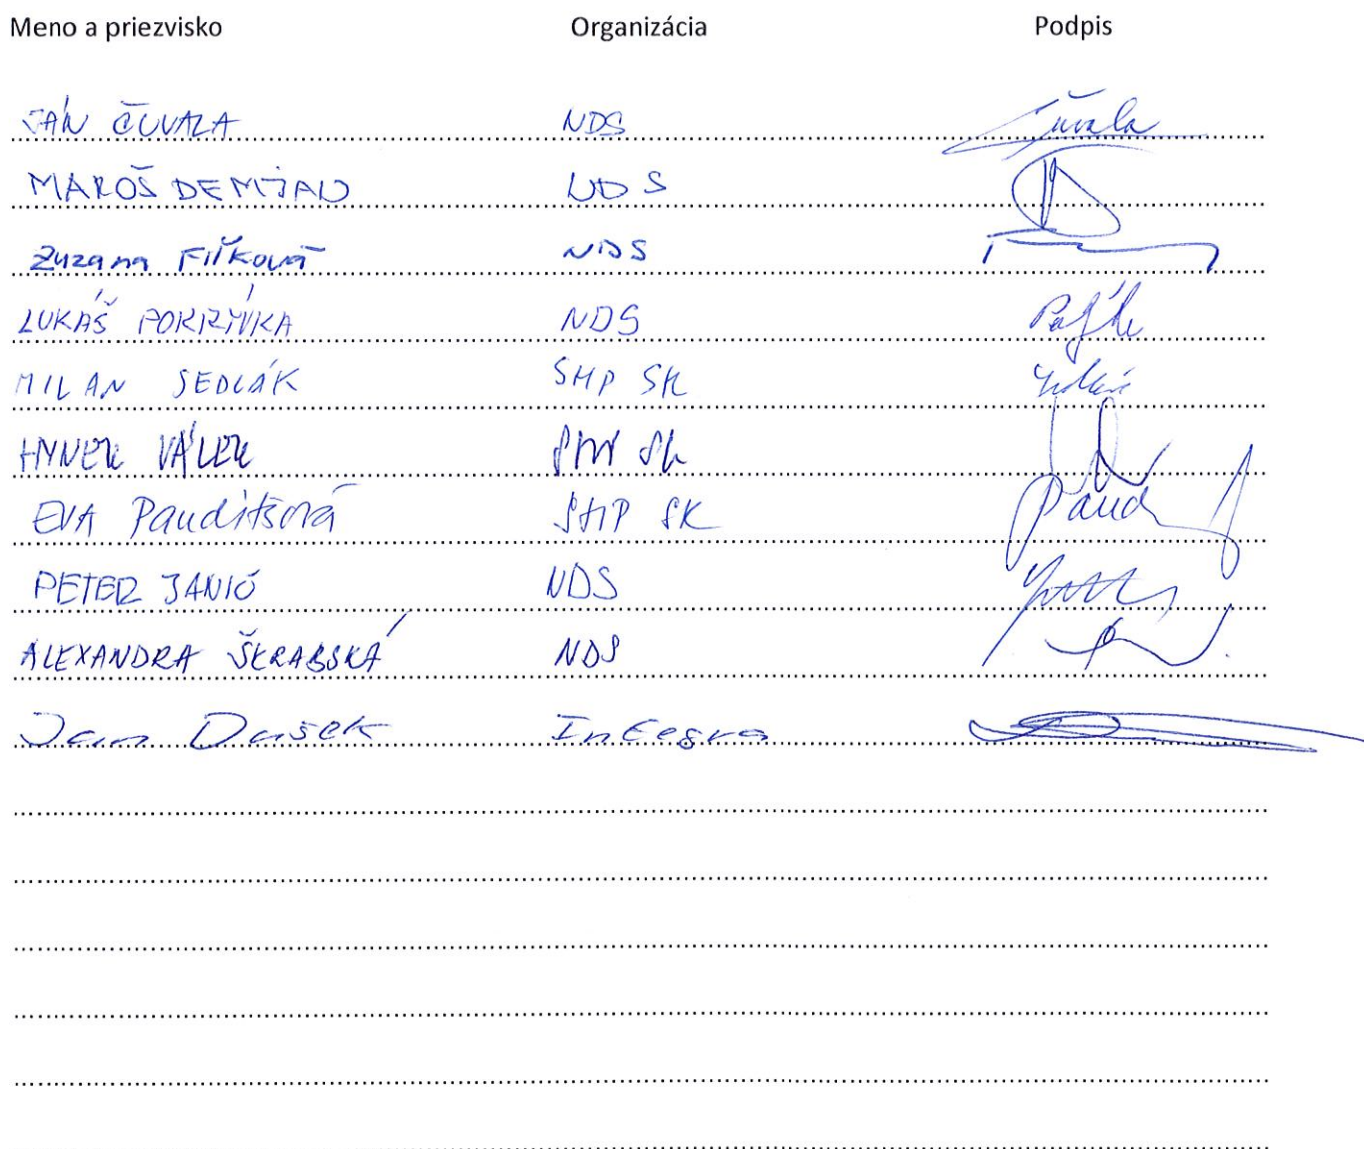 Meno a priezvisko Organizácia Podpis
JÁN ČUVALA NDS Čuvala
MAROŠ DEMJAN NDS
Zuzana Fifiková NDS
LUKÁŠ POKRÍVKA NDS
MILAN SEDLÁK SHP SK
HYNEK VÁLEK SHP SK
EVA Pauditšová SHP SK Paud
PETER JANIČ NDS
ALEXANDRA ŠKRABSKÁ NDS
Jan Dušek Integra